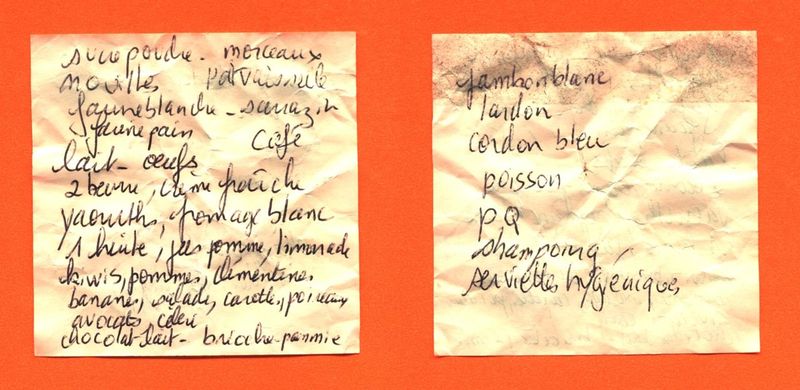 sucre poudre - morceaux
nouilles poivre sel
farine blanche - sarrazin
farine pain café
lait - oeufs
2 beurre, crème fraîche
yaourths, fromage blanc
1 huile, jus pomme, limonade
kiwis, pommes, clémentines
bananes, salade, carottes, poireaux
avocats céleri
chocolat-lait - brioche - panmie
jambon blanc
lardon
cordon bleu
poisson
PQ
shampoing
serviettes hygiéniques